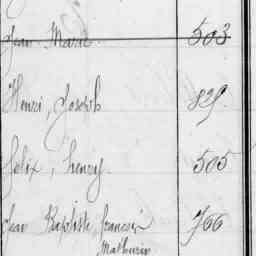 Jean Marie 503
Henri, Joseph 829
Felix, henry 505
Jean Baptiste, francois 766
Mathurin